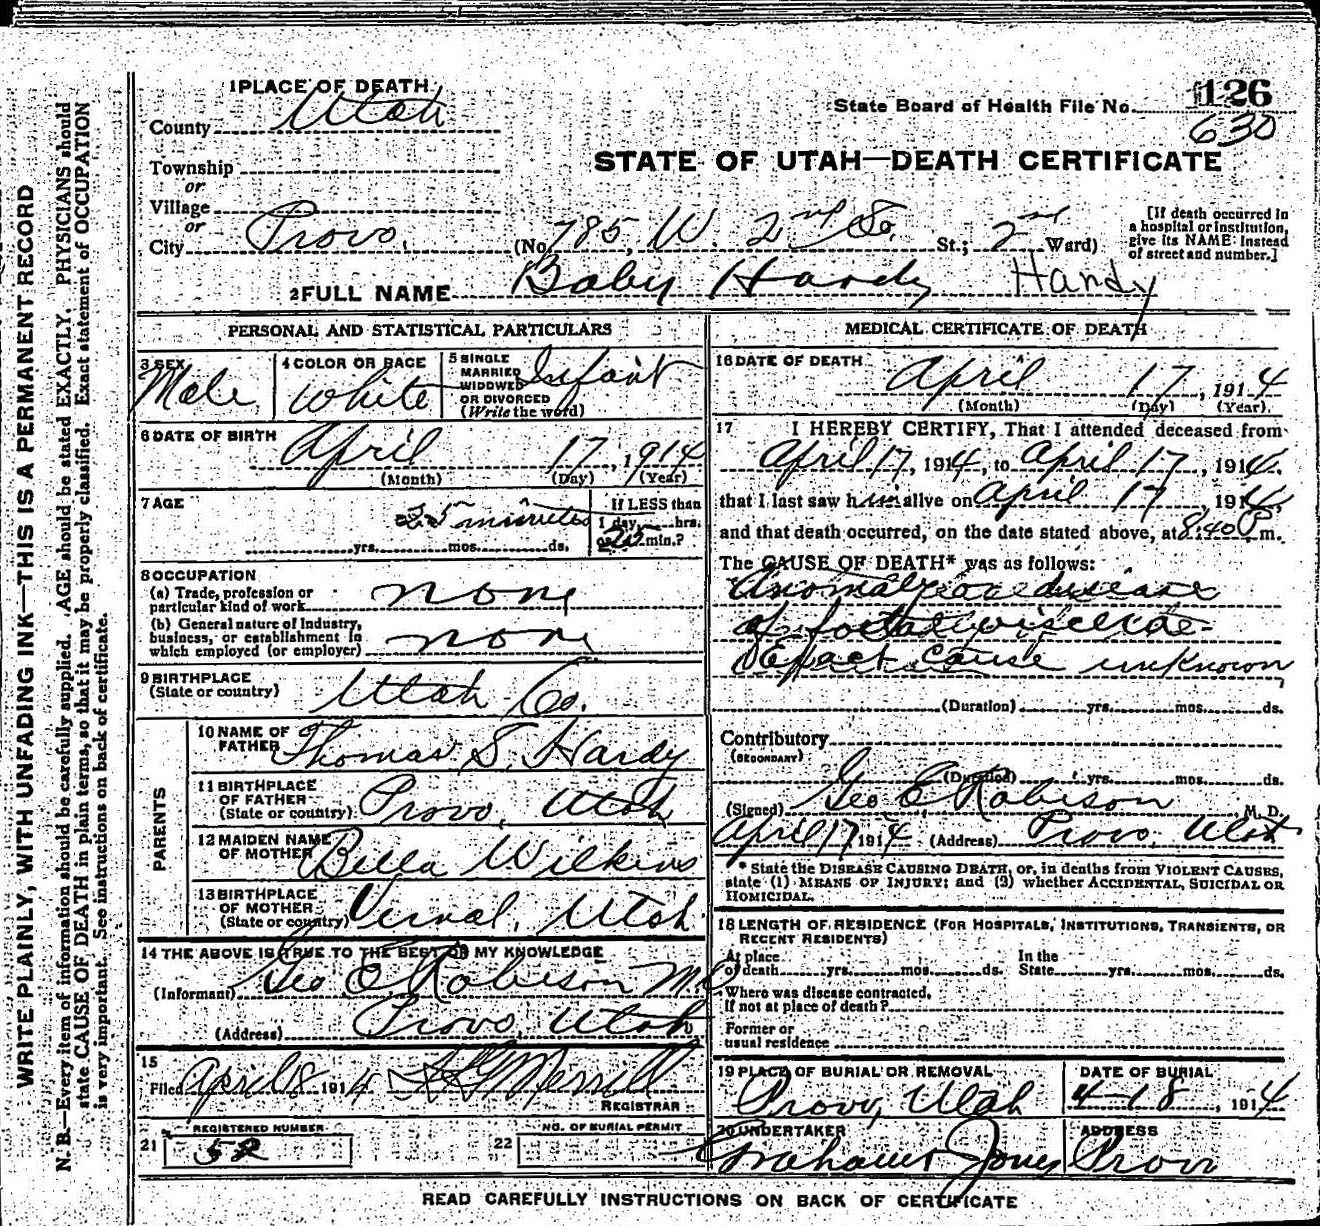 WRITE PLAINLY, WITH UNFADING INK—THIS IS A PERMANENT RECORD
N. B.—Every item of information should be carefully supplied. AGE should be stated EXACTLY. PHYSICIANS should
state CAUSE OF DEATH in plain terms, so that it may be properly classified. Exact statement of OCCUPATION
is very important. See instructions on back of certificate.
1 PLACE OF DEATH
County Utah
Township
or
Village
or
City Provo. (No. 785, W. 2nd So. St.; 2nd Ward)
State Board of Health File No. 126
630
STATE OF UTAH—DEATH CERTIFICATE
[If death occurred in
a hospital or institution,
give its NAME instead
of street and number.]
2 FULL NAME Baby Hardy Hardy
PERSONAL AND STATISTICAL PARTICULARS
3 SEX
Male
4 COLOR OR RACE
White
5 SINGLE
MARRIED
WIDOWED
OR DIVORCED
(Write the word)
Infant
6 DATE OF BIRTH
April 17, 1914
(Month) (Day) (Year)
7 AGE
25 minutes
yrs. mos. ds.
If LESS than
1 day, hrs.
or 25 min.?
8 OCCUPATION
(a) Trade, profession or
particular kind of work none
(b) General nature of Industry,
business, or establishment in
which employed (or employer) none
9 BIRTHPLACE
(State or country) Utah Co.
PARENTS
10 NAME OF
FATHER Thomas S. Hardy
11 BIRTHPLACE
OF FATHER
(State or country) Provo, Utah
12 MAIDEN NAME
OF MOTHER Bella Wilkins
13 BIRTHPLACE
OF MOTHER
(State or country) Vernal, Utah
14 THE ABOVE IS TRUE TO THE BEST OF MY KNOWLEDGE
(Informant) Geo E Robison M.D.
(Address) Provo, Utah
15
Filed April 18 1914 Merrill
REGISTRAR
REGISTERED NUMBER
21 52
NO. OF BURIAL PERMIT
22
MEDICAL CERTIFICATE OF DEATH
16 DATE OF DEATH
April 17, 1914
(Month) (Day) (Year)
17 I HEREBY CERTIFY, That I attended deceased from
April 17, 1914, to April 17, 1914.
that I last saw him alive on April 17, 1914.
and that death occurred, on the date stated above, at 8:40 P. m.
The CAUSE OF DEATH* was as follows:
Anomaly disease
of foetal
Exact cause unknown
(Duration) yrs. mos. ds.
Contributory
(SECONDARY)
(Duration) yrs. mos. ds.
(Signed) Geo E Robison M. D.
April 17 1914 (Address) Provo, Utah
* State the DISEASE CAUSING DEATH, or, in deaths from VIOLENT CAUSES,
state (1) MEANS OF INJURY; and (2) whether ACCIDENTAL, SUICIDAL OR
HOMICIDAL.
18 LENGTH OF RESIDENCE (FOR HOSPITALS, INSTITUTIONS, TRANSIENTS, OR
RECENT RESIDENTS)
At place
of death yrs. mos. ds.
In the
State yrs. mos. ds.
Where was disease contracted,
If not at place of death?
Former or
usual residence
19 PLACE OF BURIAL OR REMOVAL
Provo, Utah
DATE OF BURIAL
4-18, 1914
20 UNDERTAKER
Jones
ADDRESS
Provo
READ CAREFULLY INSTRUCTIONS ON BACK OF CERTIFICATE